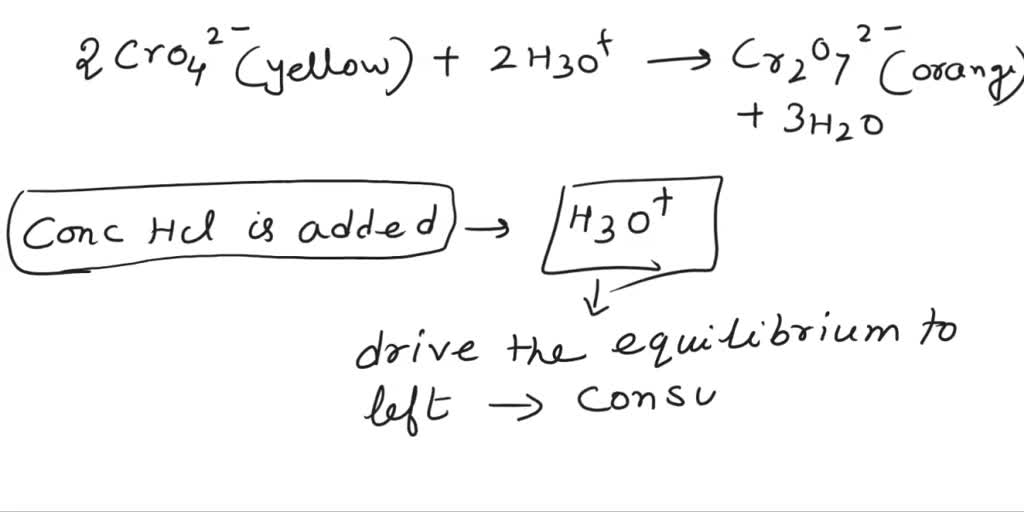 2 CrO4 2- (yellow) + 2 H3O+ → Cr2O7 2- (orange)
+ 3H2O
Conc HCl is added → H3O+
drive the equilibrium to
left → consu